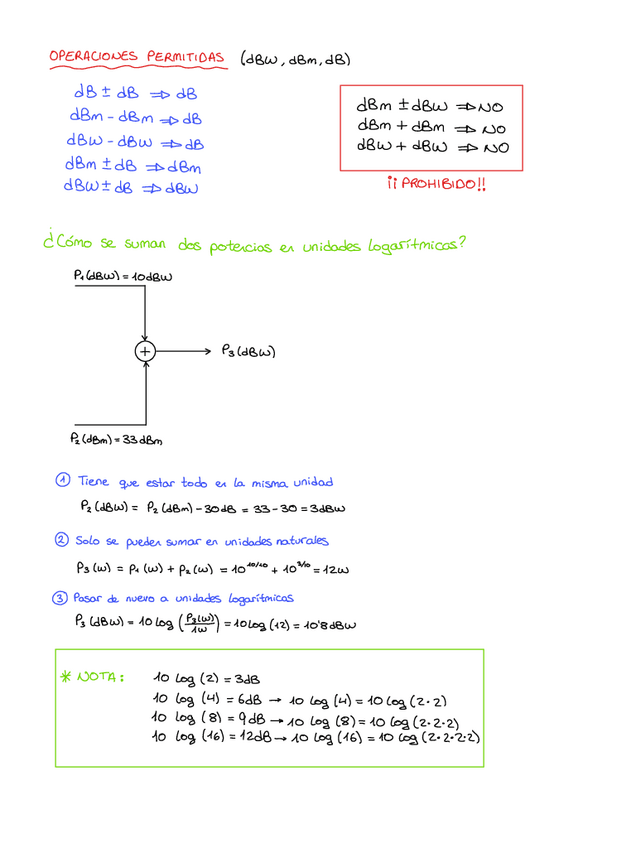 OPERACIONES PERMITIDAS (dBW, dBm, dB)
dB ± dB ⇒ dB
dBm - dBm ⇒ dB
dBW - dBW ⇒ dB
dBm ± dB ⇒ dBm
dBW ± dB ⇒ dBW
dBm ± dBW ⇒ NO
dBm + dBm ⇒ NO
dBW + dBW ⇒ NO
¡¡PROHIBIDO!!
¿Cómo se suman dos potencias en unidades logarítmicas?
P₁(dBW) = 10dBW
+ P₃(dBW)
P₂(dBm) = 33dBm
① Tiene que estar todo en la misma unidad
P₂(dBW) = P₂(dBm) - 30dB = 33 - 30 = 3dBW
② Solo se pueden sumar en unidades naturales
P₃(W) = P₁(W) + P₂(W) = 10^10/10 + 10^3/10 = 12W
③ Pasar de nuevo a unidades logarítmicas
P₃(dBW) = 10 log (P₃(W)/1W) = 10 log (12) = 10'8dBW
* NOTA: 10 log (2) = 3dB
10 log (4) = 6dB → 10 log (4) = 10 log (2·2)
10 log (8) = 9dB → 10 log (8) = 10 log (2·2·2)
10 log (16) = 12dB → 10 log (16) = 10 log (2·2·2·2)